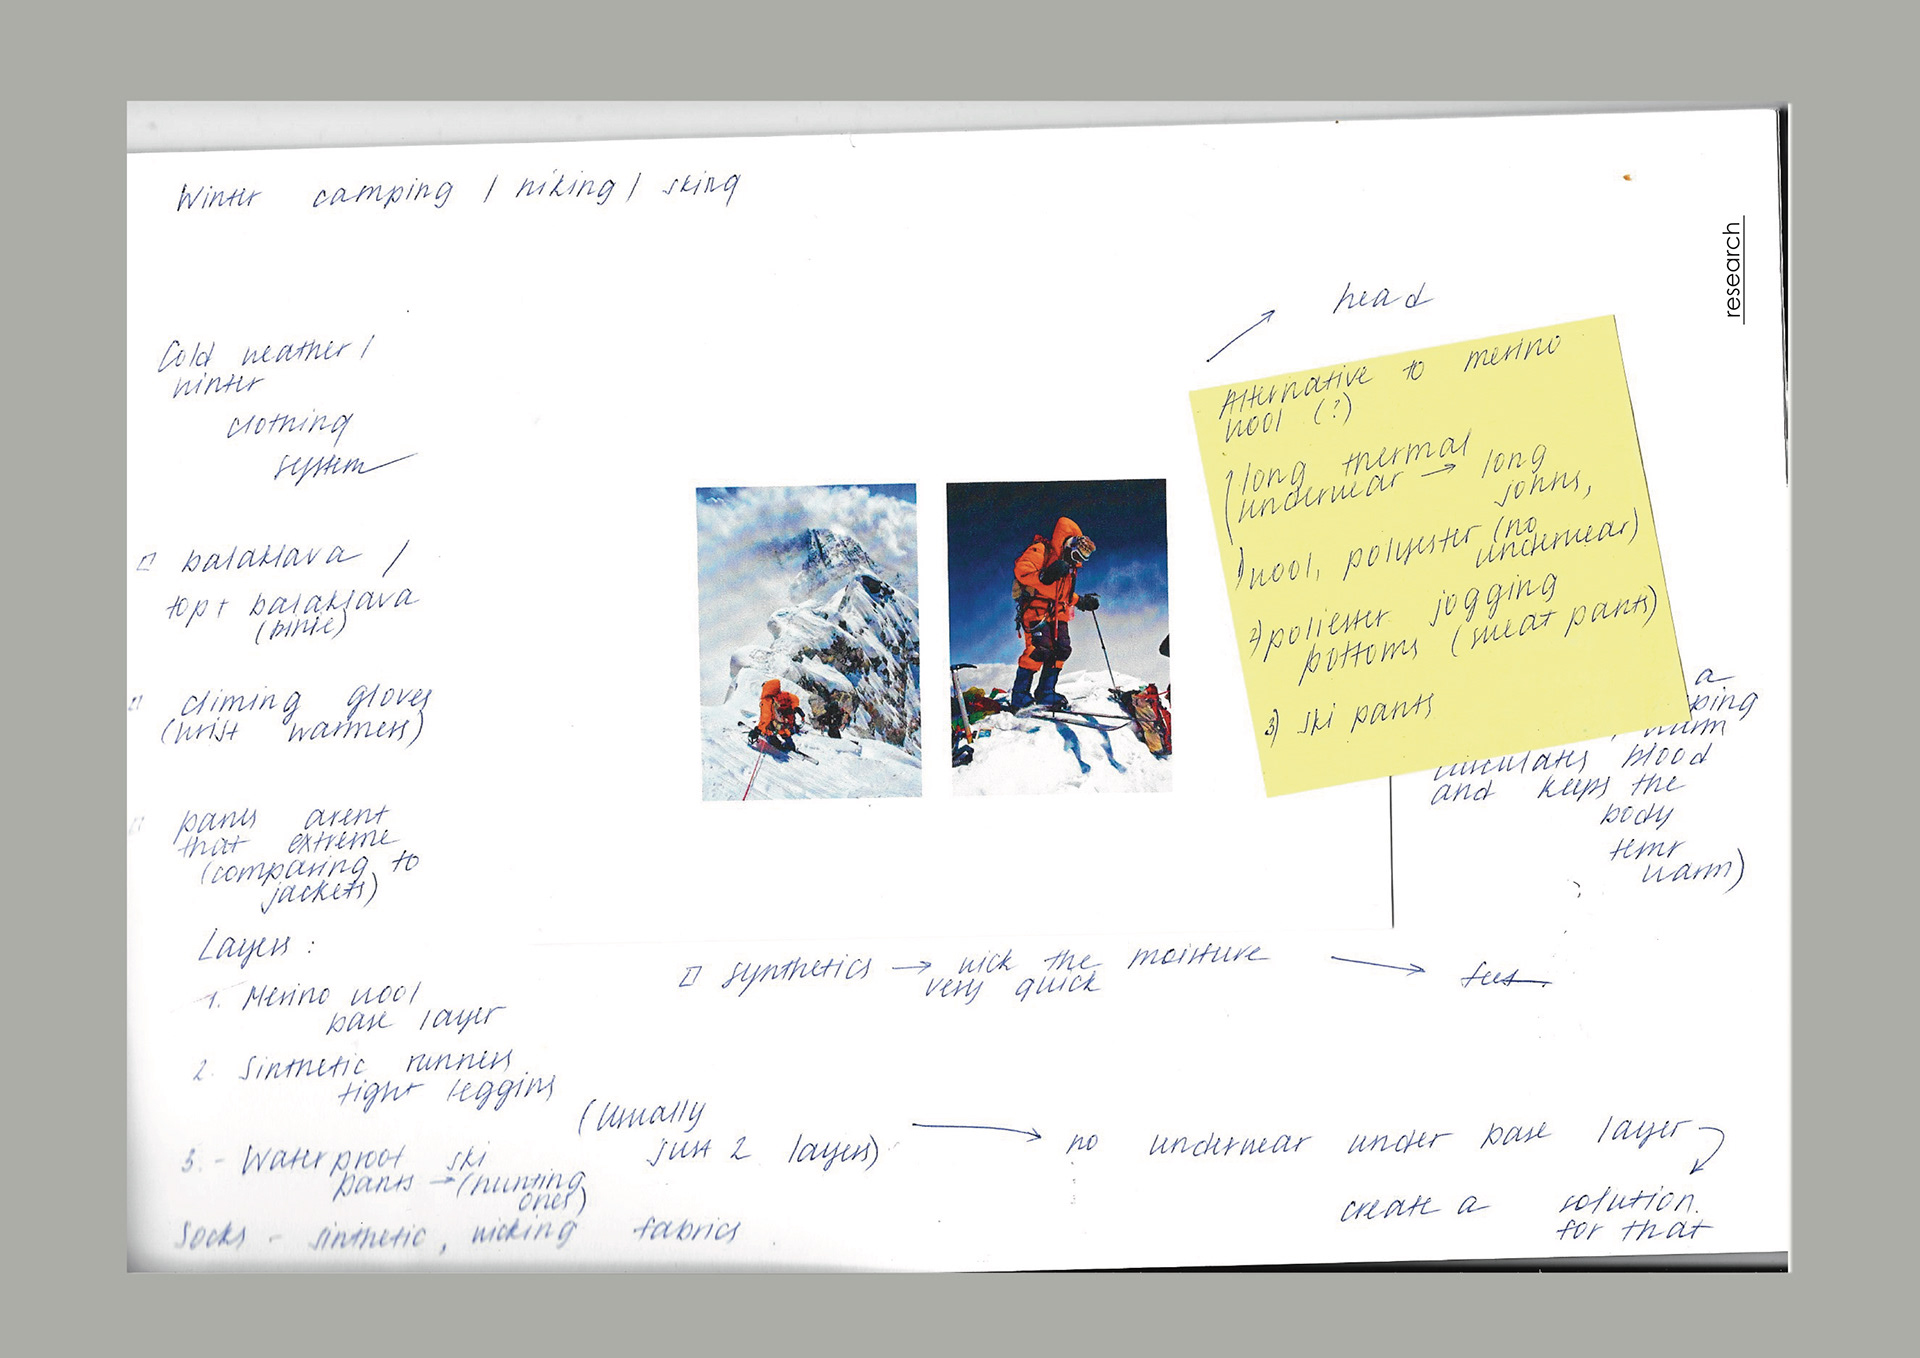 Winter camping / hiking / skiing
research
Cold weather /
winter
clothing
system
balaklava /
top + balaklava
(binie)
climing gloves
(wrist warmers)
pants arent
that extreme
(comparing to
jackets)
Layers :
1. Merino wool
base layer
2. Sinthetic runners
tight leggins
(usually
just 2 layers)
3. - Waterproof ski
pants → (hunting
ones)
Socks - sinthetic, wicking fabrics
head
Alternative to merino
wool (?)
long thermal
underwear → long
johns,
1) wool, polyester (no
underwear)
2) poliester jogging
bottoms (sweat pants)
3) ski pants
a
ping
, warm
circulates blood
and keeps the
body
warm)
synthetics → wick the moisture
very quick
→
→ no underwear under base layer
create a solution.
for that